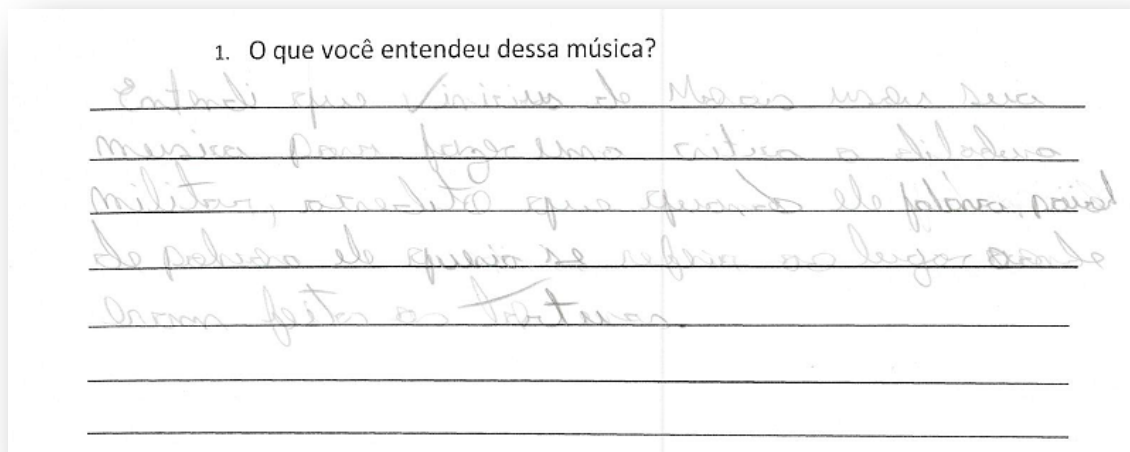 1. O que você entendeu dessa música?
Entendi que Vinicius de Moraes usou sua
musica para fazer uma critica a ditadura
militar, acredito que quando ele falava
de polvora ele queria se referir ao lugar aonde
eram feitas as torturas.